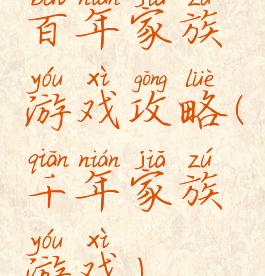 bǎi nián jiā zú
百年家族
yóu xì gōng lüè
游戏攻略(
qiān nián jiā zú
千年家族
yóu xì
游戏)